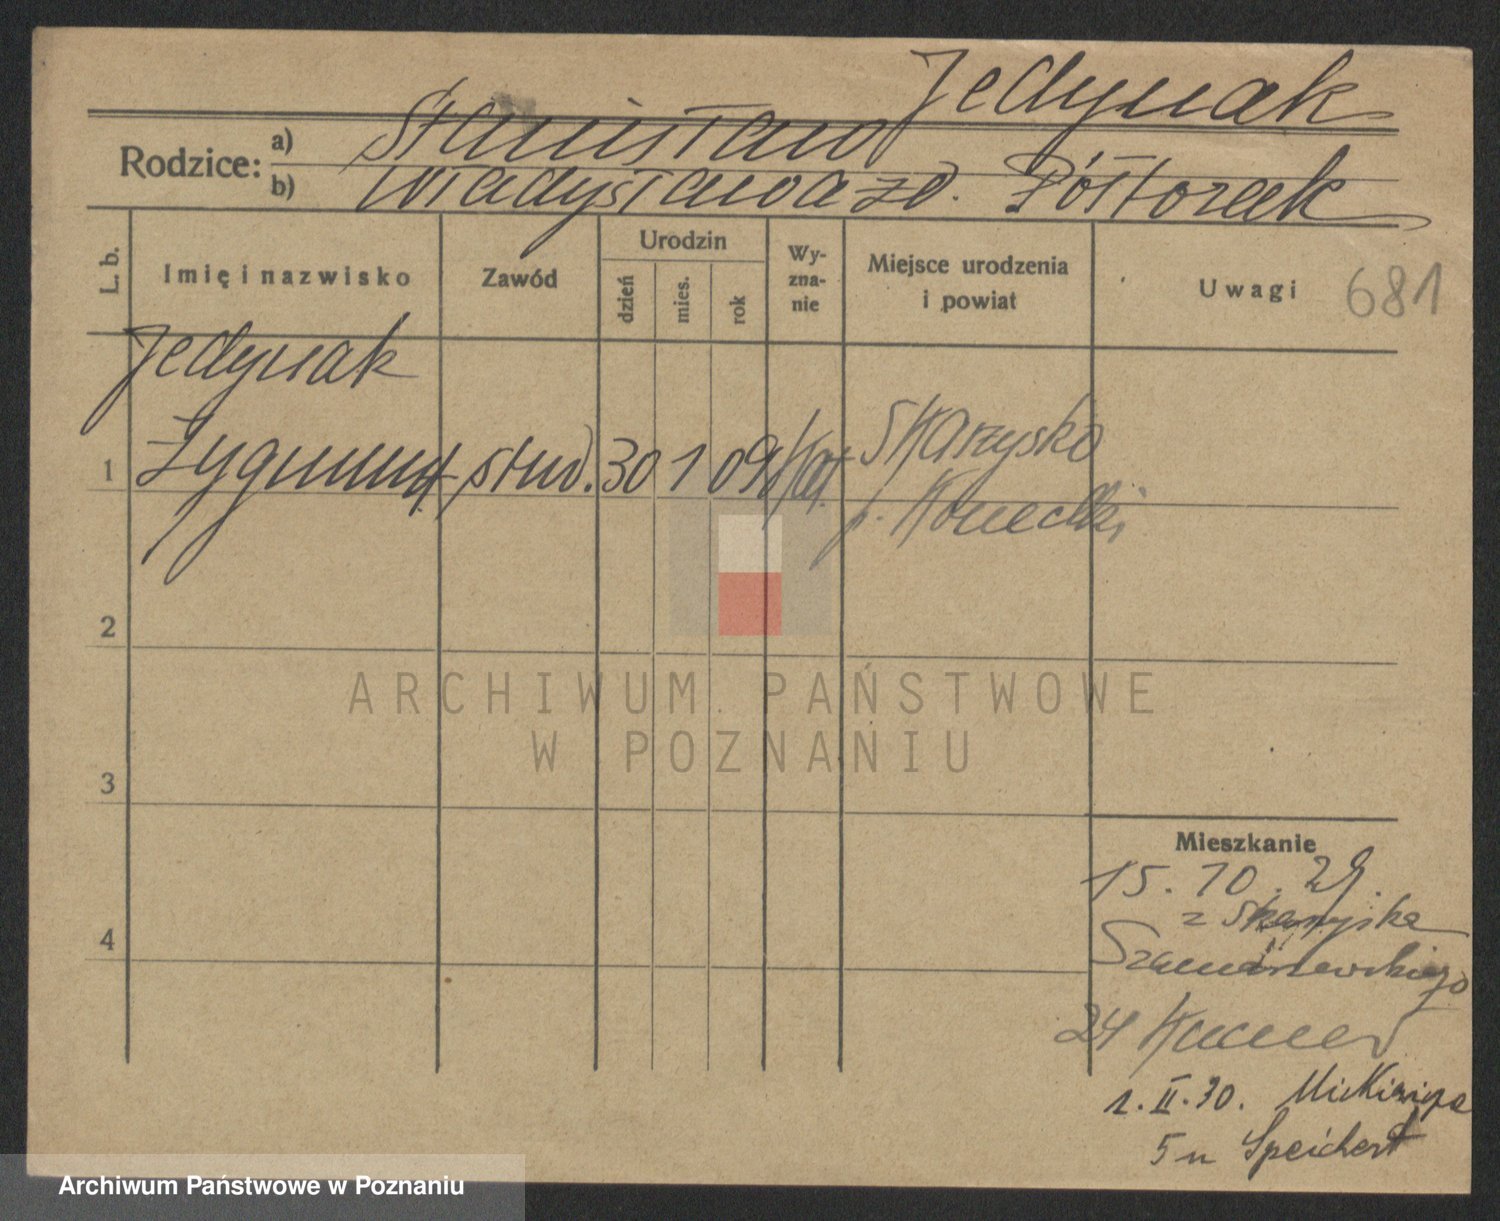 Jedynak
Rodzice: a) Stanisław
b) Władysława zd. Półtorak
L. b. Imię i nazwisko Zawód Urodzin dzień mies. rok Wyznanie Miejsce urodzenia i powiat Uwagi 681
Jedynak
1 Zygmunt stud. 30 1 09 kat. Skarzysko
p. Konecki
2
ARCHIWUM PAŃSTWOWE
W POZNANIU
3
Mieszkanie
15. 10. 29.
z Skarzyska
4
Szamarzewskiego
24
1. II. 30. Mickiewicza
5 u Speichert
Archiwum Państwowe w Poznaniu